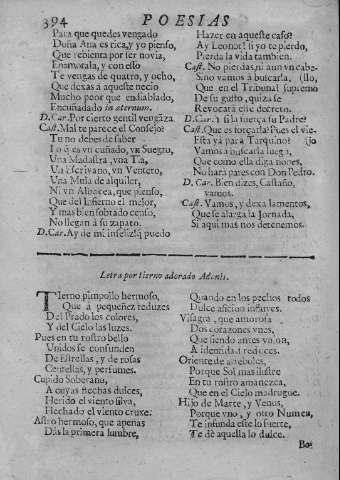 394
POESIAS
Para que quedes vengado
Doña Ana es rica, y yo pienso,
Que rebienta por ser novia,
Enamorala, y con ello
Te vengas de quatro, y ocho,
Que dexas à aqueste necio
Mucho peor que endiablado,
Encuñadado in æternum.
D. Car. Por cierto gentil vengãza.
Cast. Mal te parece el Consejo?
Tu no debes de saber
Lo q̃ es vn cuñado, vn Suegro,
Una Madastra, vna Tia,
Un Escrivano, vn Ventero,
Una Mula de alquiler,
Ni vn Albacea, que pienso,
Que del Infierno el mejor,
Y mas bien sobrado censo,
No llegan à su zapato.
D. Car. Ay de mi infeliz! q̃ puedo
Hazer en aqueste caso?
Ay Leonor! si yo te pierdo,
Pierda la vida tambien.
Cast. No pierdas, ni aun vn cabe-
Sino vamos à buscarla, (llo,
Que en el Tribunal supremo
De su gusto, quiza se
Revocarà este decreto.
D. Car. Y si la fuerça su Padre?
Cast. Que es forçarla? Pues el vie-
Està yà para Tarquino? (jo
Vamos à buscarla luego,
Que como ella diga nones,
No harà pares con Don Pedro.
D. Car. Bien dizes, Castaño,
vamos.
Cast. Vamos, y dexa lamentos,
Que se alarga la Jornada,
Si aqui mas nos detenemos.
Letra por tierno adorado Adonis.
TIerno pimpollo hermoso,
Que à pequeñez reduzes
Del Prado los colores,
Y del Cielo las luzes.
Pues en tu rostro bello
Unidos se confunden
De Estrellas, y de rosas
Centellas, y perfumes.
Cupido Soberano,
A cuyas flechas dulces,
Herido el viento silva,
Flechado el viento cruxe.
Astro hermoso, que apenas
Dàs la primera lumbre,
Quando en los pechos todos
Dulce aficion influyes.
Visagra, que amorosa
Dos corazones vnes,
Que siendo antes vnion,
A identidad reduces.
Oriente de arreboles,
Porque Sol mas ilustre
En tu rostro amanezca,
Que en el Cielo madrugue.
Hijo de Marte, y Venus,
Porque vno, y otro Numen,
Te infunda este lo fuerte,
Te dè aquella lo dulce.